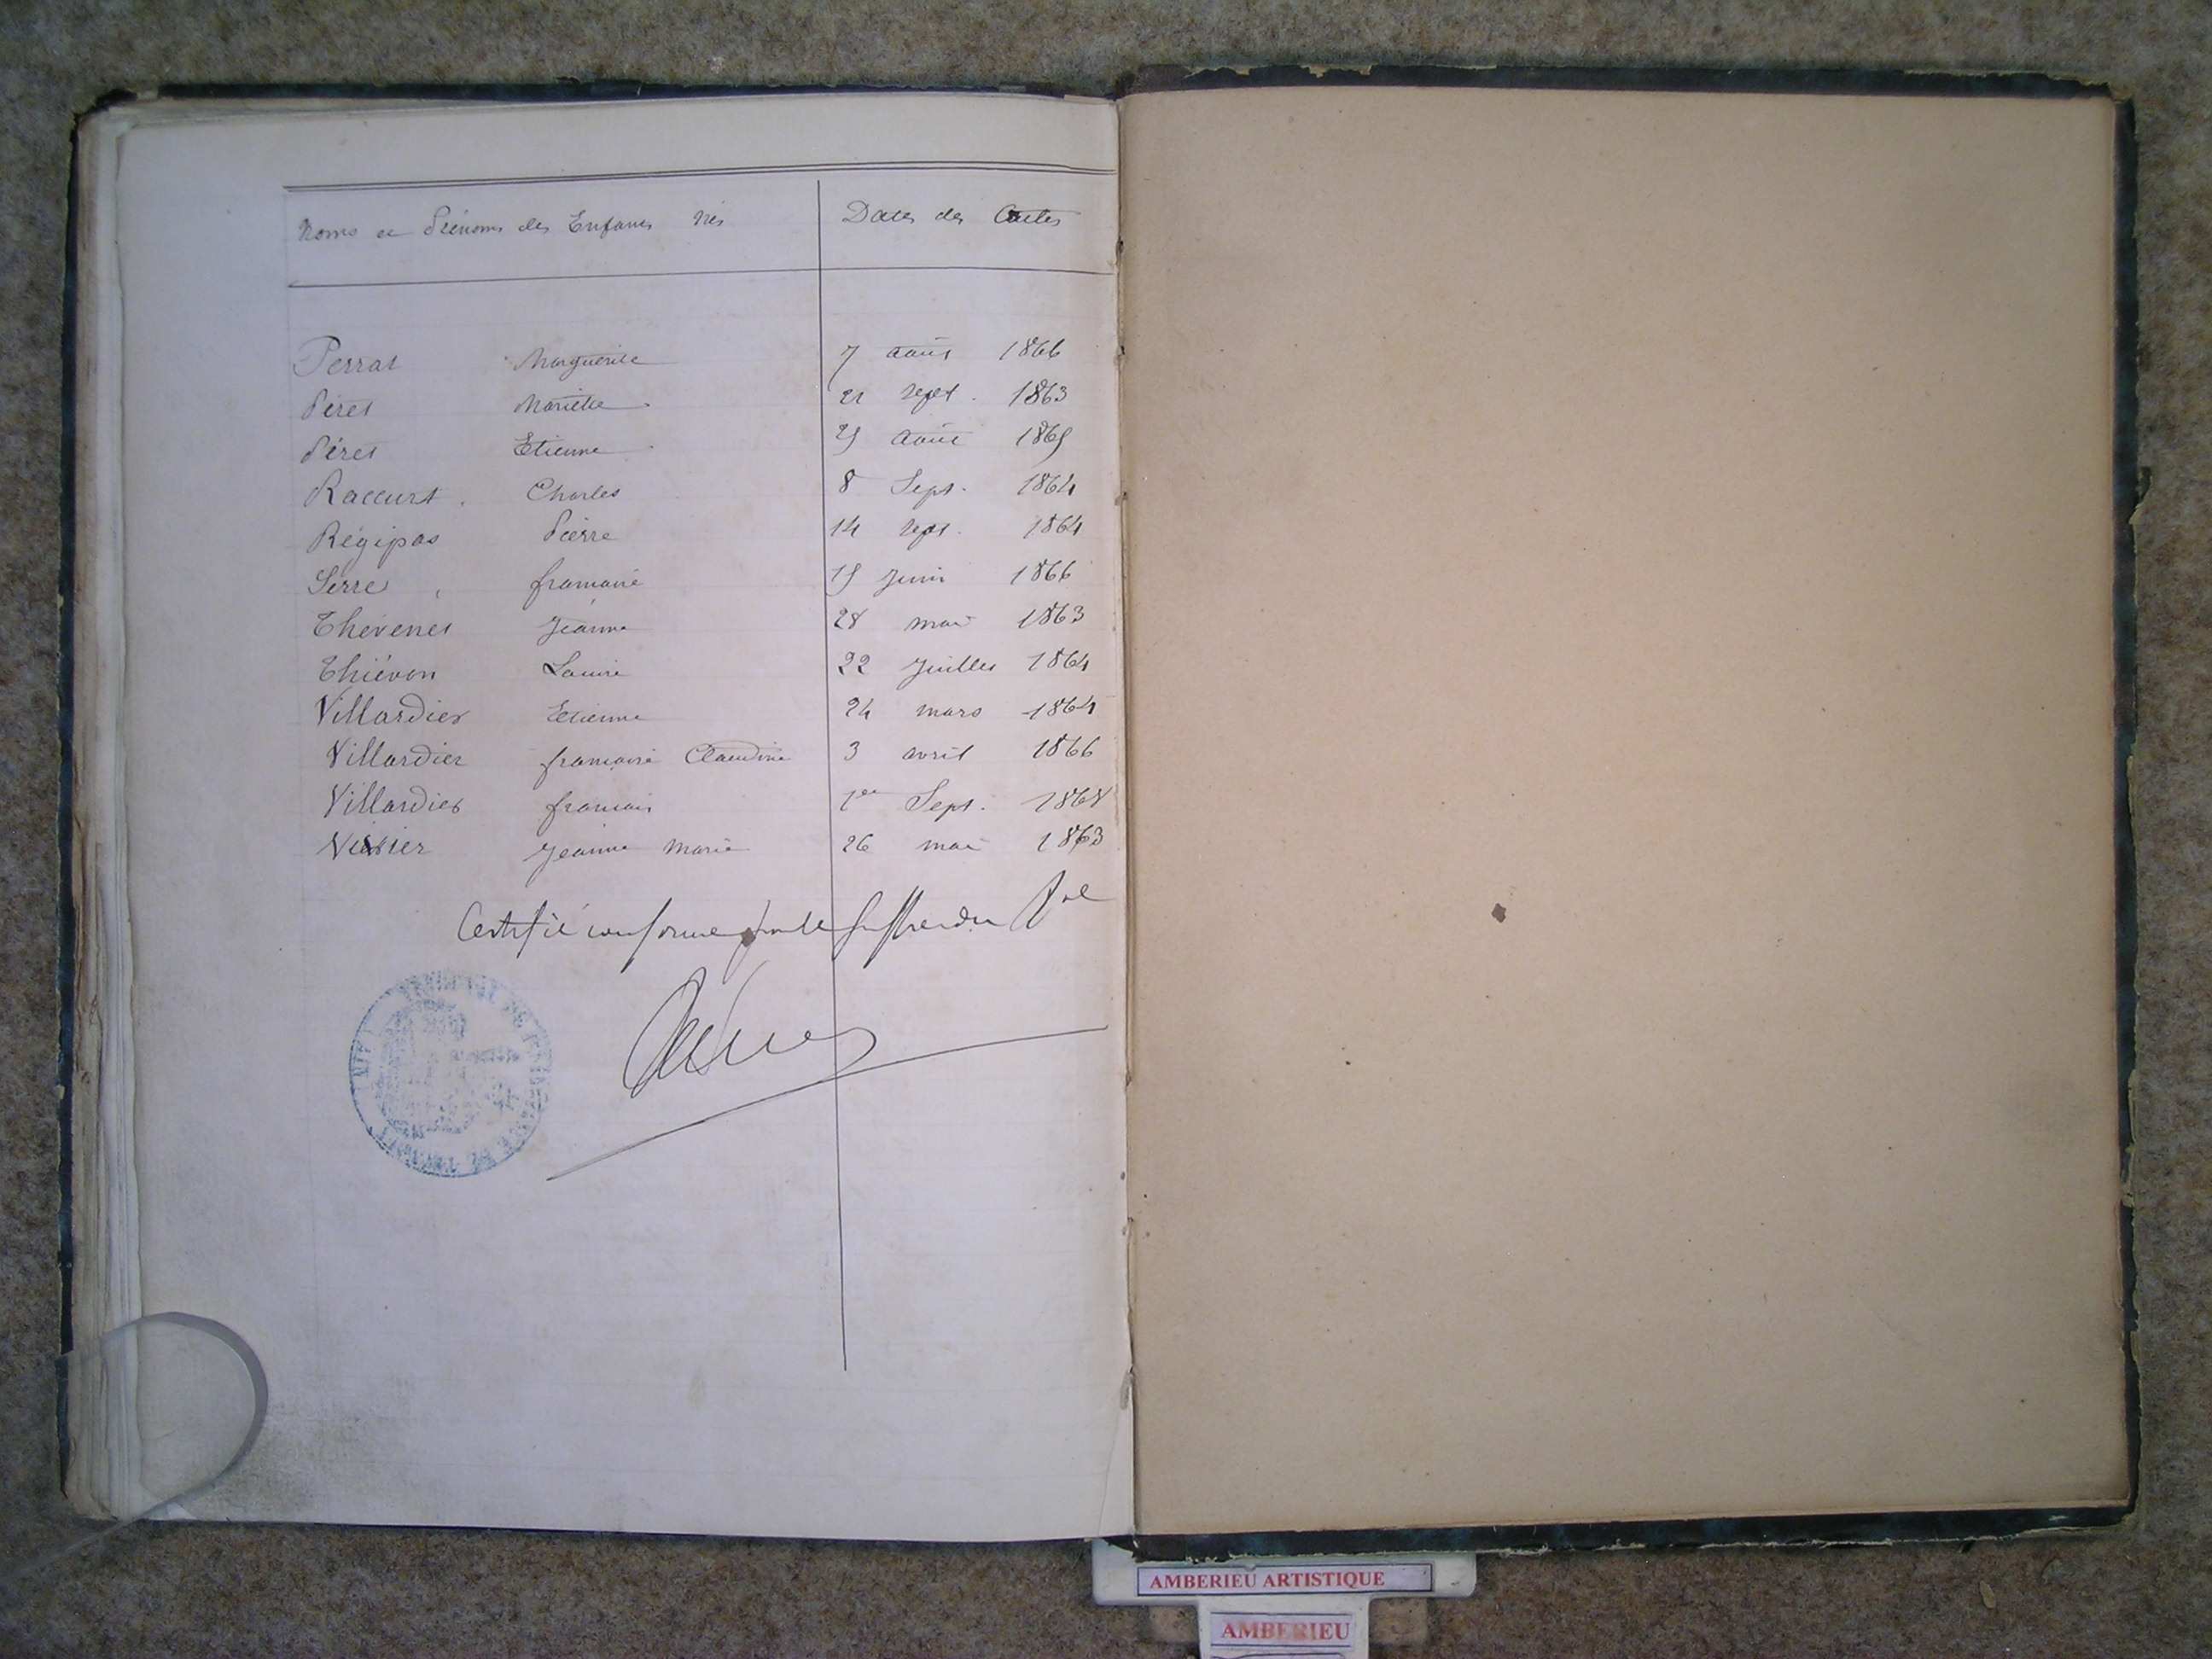 Noms et Prénoms des Enfants nés Dates des Actes
Perrat Marguerite 7 août 1866
Péret Mariette 21 sept. 1863
Péret Etienne 25 août 1865
Raccurt Charles 8 Sept. 1864
Régipas Pierre 14 sept. 1864
Serre françoise 15 Juin 1866
Thévenet Jeanne 28 mai 1863
Thiévon Louise 22 Juillet 1864
Villardier Etienne 24 mars 1864
Villardier françoise Claudine 3 avril 1866
Villardier françois 1er Sept. 1868
Jeanne Marie 26 mai 1863
Certifié conforme par le Greffier du
AMBERIEU ARTISTIQUE
AMBERIEU